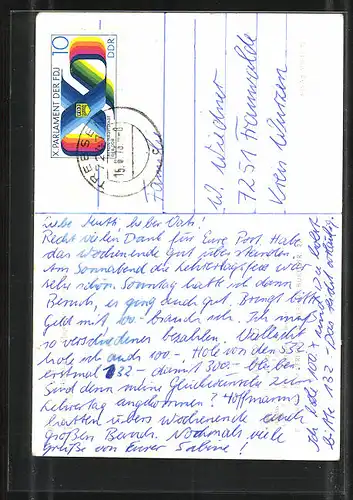 X. PARLAMENT DER FDJ
10
DDR
Familie
W. Wiedner
7251
Kreis Wurzen
Liebe Mutti, lieber Vati!
Recht vielen Dank für Eure Post. Habe
das Wochenende gut überstanden.
Am Sonnabend die Lehrertagsfeier war
sehr schön. Sonntag hatte ich dann
Besuch, es ging auch gut. Bringt bitte
Geld mit 100,- brauch ich. Ich muß
so verschiedenes bezahlen. Vielleicht
hole ich auch 100,-. Hole von den 532
erstmal 132,- damit 300,- bleiben.
Sind denn meine Glückwünsche zum
Lehrertag angekommen? Hoffmanns
hatten übers Wochenende auch
großen Besuch. Nochmals viele
Grüße von Eurer Sabine!
Ich hole 100 x und Du holst
bitte 132,- Das